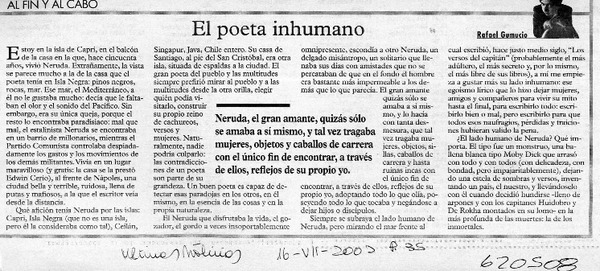 AL FIN Y AL CABO
El poeta inhumano
Rafael Gumucio
Estoy en la isla de Capri, en el balcón
de la casa en la que, hace cincuenta
años, vivió Neruda. Extrañamente, la vista
se parece mucho a la de la casa que el
poeta tenía en Isla Negra: pinos negros,
rocas, mar. Ese mar, el Mediterráneo, a
él no le gustaba mucho: decía que le faltaban
el olor y el sonido del Pacífico. Sin
embargo, era su única queja, porque el
resto lo encontraba paradisíaco: mal que
mal, el estalinista Neruda se encontraba
en un barrio de millonarios, mientras el
Partido Comunista controlaba despiadadamente
los gastos y los movimientos de
los demás militantes. Vivía en un lugar
maravilloso (y gratis: la casa se la prestó
Edwin Cerio), enfrente de Nápoles, una
ciudad bella y terrible, ruidosa, llena de
putas y mafiosos, a la que el escritor veía
desde la distancia.
Qué afición tenía Neruda por las islas:
Capri, Isla Negra (que no es una isla,
pero él la consideraba como tal), Ceilán,
Singapur, Java, Chile entero. Su casa de
Santiago, al pie del San Cristóbal, era otra
isla, situada de espaldas a la ciudad. El
gran poeta del pueblo y las multitudes
siempre prefirió mirar al pueblo y a las
multitudes desde la otra orilla, elegir
quién podía visitarlo,
construir
su propio reino
de cachureos,
versos y mujeres.
Naturalmente,
nadie podría
culparlo: las
contradicciones
de un poeta
son parte de su
grandeza. Un buen poeta es capaz de detectar
esas paradojas en los otros, en él
mismo, en la esencia de las cosas y en la
propia naturaleza.
El Neruda que disfrutaba la vida, el gozador,
el gordo a veces insoportablemente
Neruda, el gran amante, quizás sólo
se amaba a sí mismo, y tal vez tragaba
mujeres, objetos y caballos de carrera
con el único fin de encontrar, a través
de ellos, reflejos de su propio yo.
omnipresente, escondía a otro Neruda, un
delgado misántropo, un solitario que llenaba
sus días con amistades que no se
percataban de que en el fondo el hombre
era bastante más impermeable a los demás
de lo que
parecía. El gran
amante quizás
sólo se amaba a
sí mismo, y lo
hacía con desesperación,
tal
vez tragaba mujeres,
objetos, sillas,
caballos de
carrera y hasta
ruinas incas con
el único fin de
encontrar reflejos de su propio
yo, adoptando todo lo que olía, poseyendo
todo lo que tocaba y negándose a
dejar hijos o discípulos.
Siempre se subraya el lado humano de
Neruda, pero mirando el mar frente al
cual escribió, hace justo medio siglo, "Los
versos del capitán" (probablemente el más
adúltero, el más secreto y, por lo mismo,
el más libre de sus libros), a mí me empieza
a gustar más su lado inhumano: ese
egoísmo lírico que lo hizo dejar mujeres,
amigos y compañeros para vivir su mito
hasta el final, para escribirlo todo: escribirlo
bien o mal, pero escribirlo para que
todos esos naufragios, pérdidas y traiciones
hubieran tenido un sentido.
¿El lado humano de Neruda? Qué importa.
El tipo fue un monstruo, una ballena
blanca tipo Moby Dick que arrasó
con todo y con todos (con delicadeza, con
bondad, pero imperiativamente), dejando
una estela de sombras y versos, inventando
un país, el nuestro, y llevándolo
con él cuando decidió hundirse -lleno de
arpones y con los capitanes Huidobro y
De Rokha montados en su lomo- en la
más profunda de las muertes: la de los
inmortales.
Últimas Noticias 16-VII-2003 P 35
620508